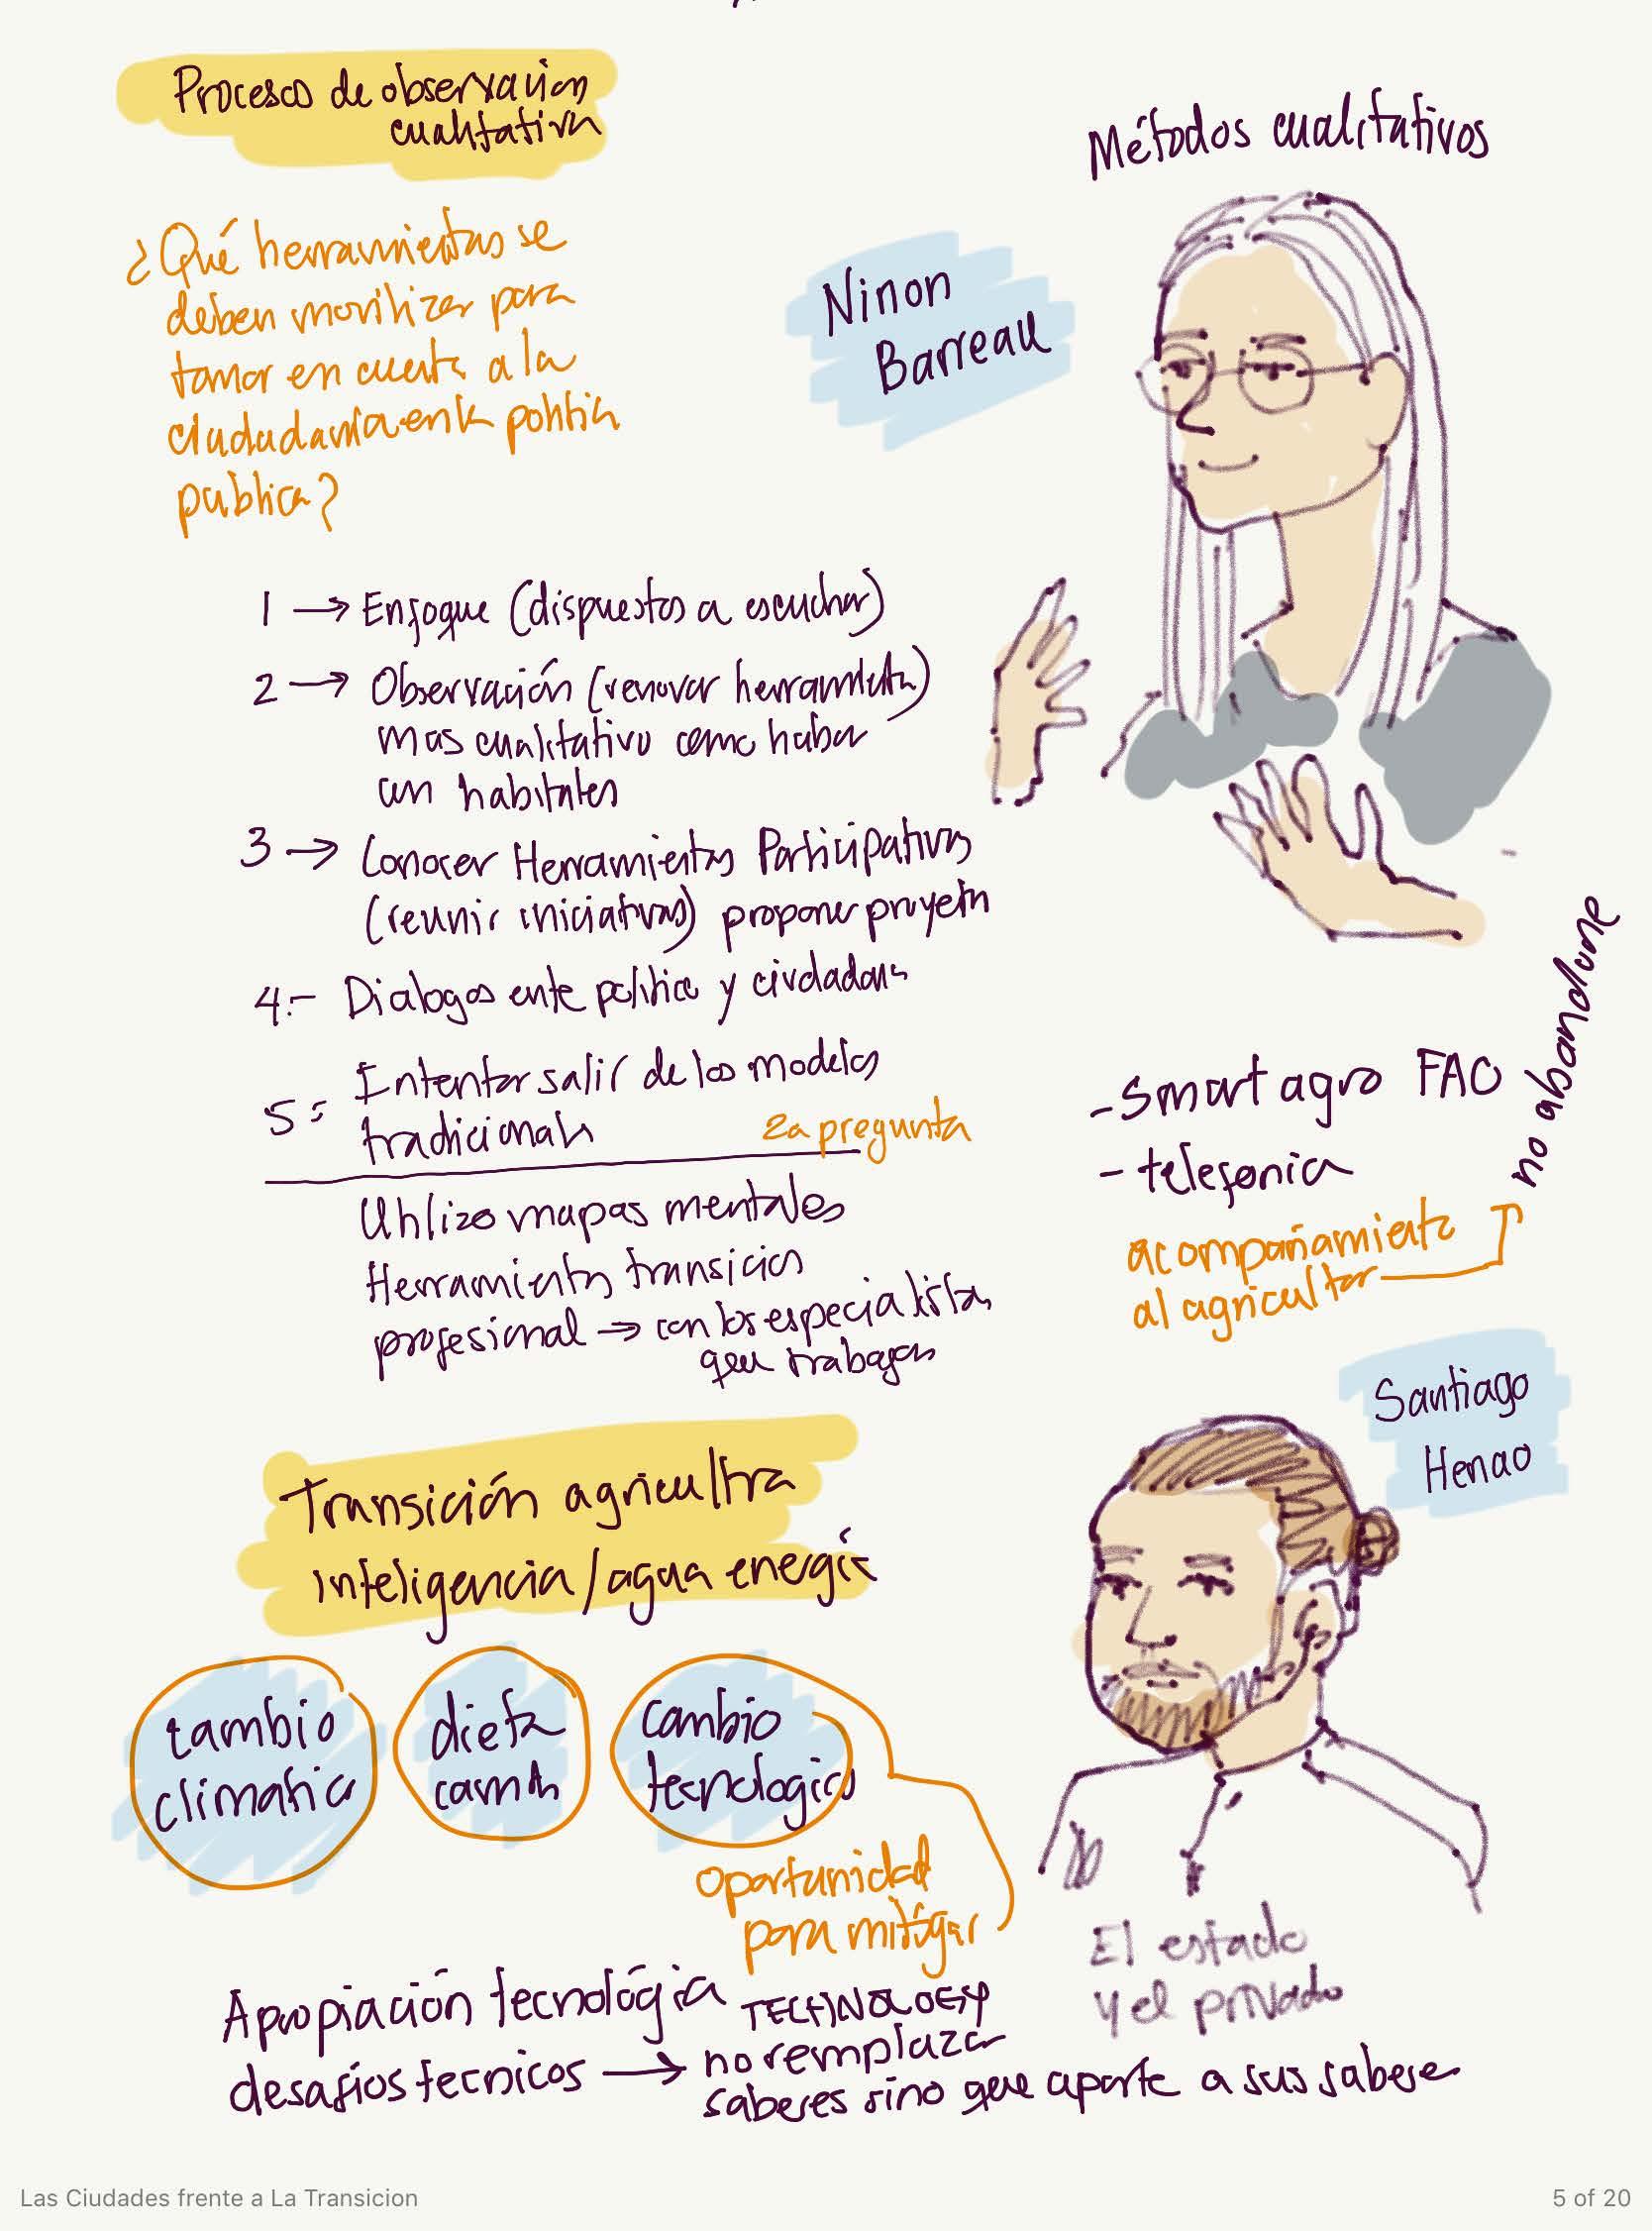 Procesos de observación
cualitativa
Métodos cualitativos
¿Qué herramientas se
deben movilizar para
tomar en cuenta a la
ciudadanía en la politica
publica?
Ninon
Barreau
1 → Enfoque (dispuestos a escuchar)
2 → Observación (renovar herramienta)
mas cualitativo como
habitantes
3 → Conocer Herramientas Participativas
(reunir iniciativas) proponer proyecto
4.- Dialogos ente politica y ciudadana
5 = Intentar salir de los modelos
tradicionales
2a pregunta
Utilizo mapas mentales
Herramientas
profesional → con los especialistas
que trabajan
- Smart agro FAO
- telefonia
acompañamiento
al agricultor
no abandone
Santiago
Henao
Transición agricultra
inteligencia/agua energía
cambio
climatico
dieta
cambio
tecnologico
oportunidad
para mitigar
El estado
y el privado
Apropiación tecnológica TECHNOLOGY
desafios tecnicos → no remplaza
saberes sino que aporte a sus saberes
Las Ciudades frente a La Transicion
5 of 20